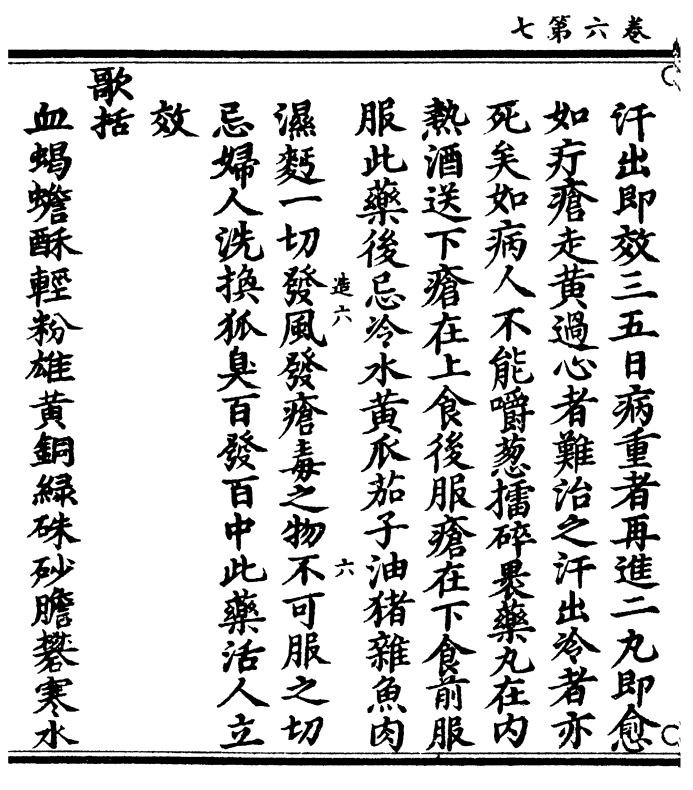 卷六第七
汗出即效三五日病重者再進二丸即愈
如疔瘡走黃過心者難治之汗出冷者亦
死矣如病人不能嚼葱擂碎裹藥丸在內
熱酒送下瘡在上食後服瘡在下食前服
服此藥後忌冷水黃瓜茄子油猪雜魚肉
造六
六
濕麪一切發風發瘡毒之物不可服之切
忌婦人洗換狐臭百發百中此藥活人立
效
歌括
血蝎蟾酥輕粉雄黃銅綠硃砂膽礬寒水